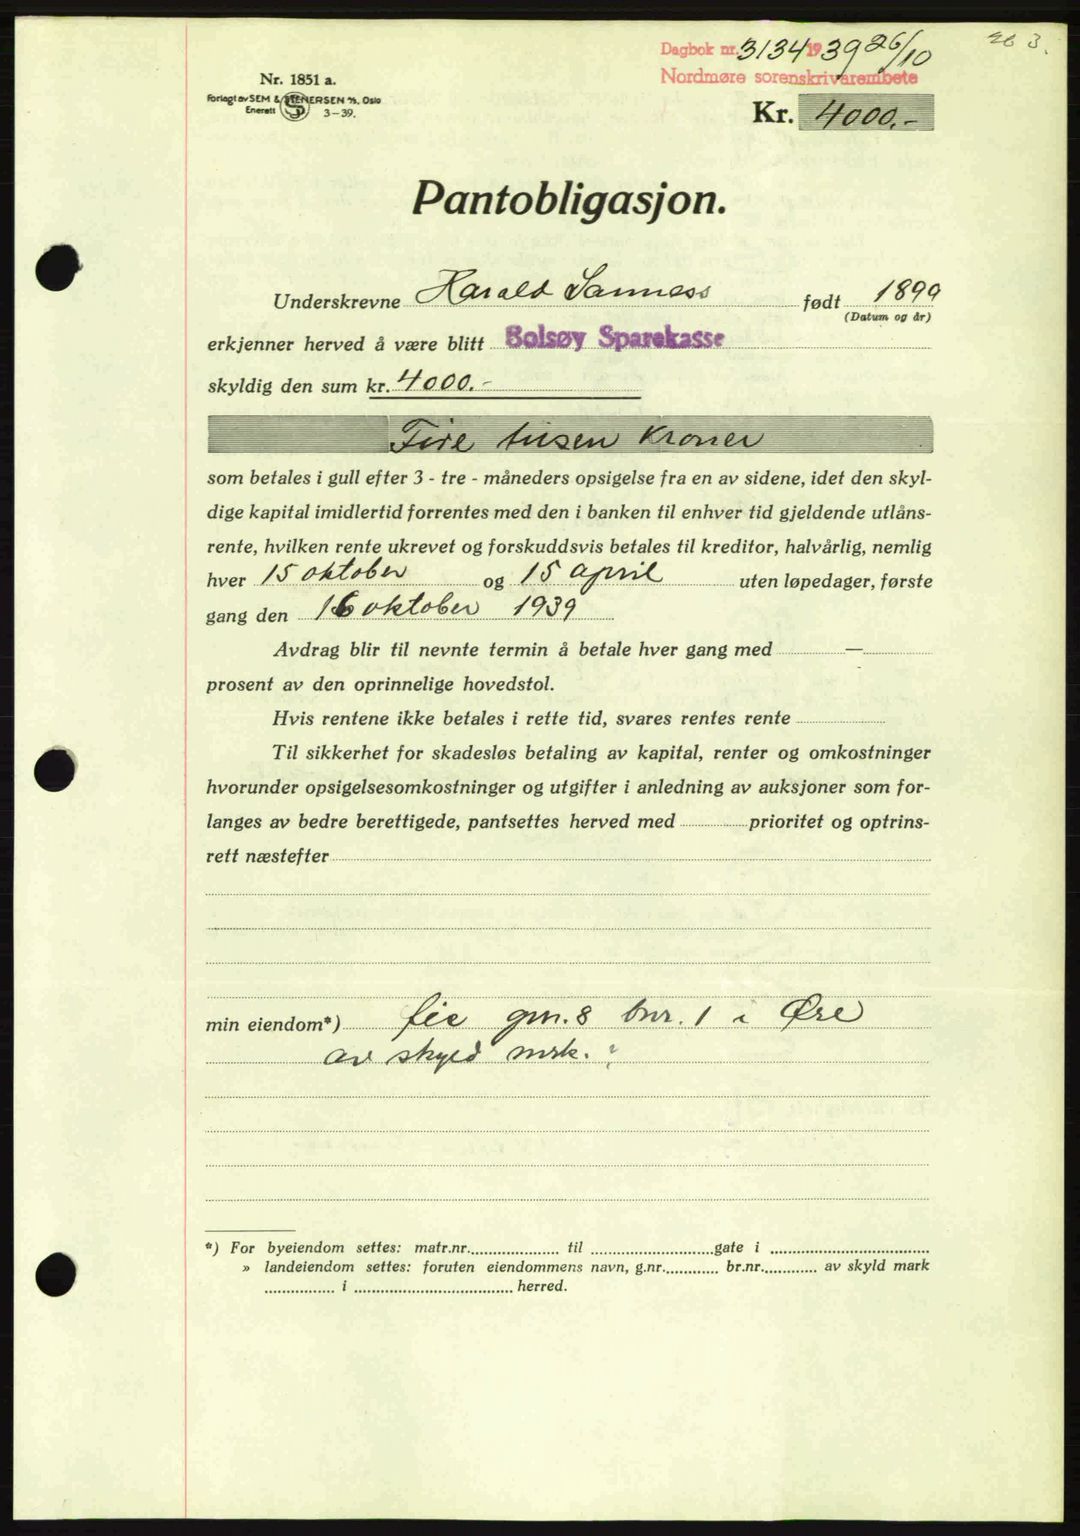 Dagbok nr. 3134 1939 26/10
Nordmøre sorenskriverembete
Nr. 1851 a.
Forlagt av SEM & STENERSEN A/S, Oslo
Enerett 3-39.
Kr. 4000.-
Pantobligasjon.
Underskrevne Harald Sanness født 1899
(Datum og år)
erkjenner herved å være blitt Bolsøy Sparekasse
skyldig den sum kr. 4000.-
Fire tusen kroner
som betales i gull efter 3 - tre - måneders opsigelse fra en av sidene, idet den skyl-
dige kapital imidlertid forrentes med den i banken til enhver tid gjeldende utlåns-
rente, hvilken rente ukrevet og forskuddsvis betales til kreditor, halvårlig, nemlig
hver 15 oktober og 15 april uten løpedager, første
gang den 16 oktober 1939
Avdrag blir til nevnte termin å betale hver gang med —
prosent av den oprinnelige hovedstol.
Hvis rentene ikke betales i rette tid, svares rentes rente
Til sikkerhet for skadesløs betaling av kapital, renter og omkostninger
hvorunder opsigelsesomkostninger og utgifter i anledning av auksjoner som for-
langes av bedre berettigede, pantsettes herved med prioritet og optrins-
rett næstefter
min eiendom*) gnr. 8 bnr. 1 i Øre
av skyld mrk.
*) For byeiendom settes: matr.nr. til gate i
» landeiendom settes: foruten eiendommens navn, g.nr. br.nr. av skyld mark
i herred.